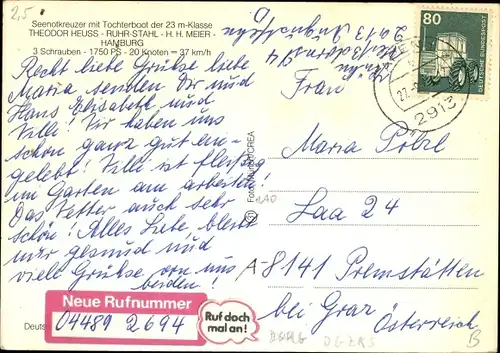 Seenotkreuzer mit Tochterboot der 23 m-Klasse
THEODOR HEUSS - RUHR-STAHL - H. H. MEIER -
HAMBURG
3 Schrauben - 1750 PS - 20 Knoten = 37 km/h
Recht liebe Grüße liebe
Maria senden Dir und
Hans Elisabeth und
Willi! Wir haben uns
schon ganz gut ein-
gelebt! Willi ist fleißig
im Garten am arbeiten!
Das Wetter auch sehr
schön! Alles Liebe bleibt
nur gesund und
viele Grüße von uns
beiden!
Neue Rufnummer
04489 2694
Ruf doch
mal an!
Deuts
2913
80
DEUTSCHE BUNDESPOST
2913
Frau
Maria Polzl
Laa 24
A-8141 Premstätten
bei Graz
Österreich